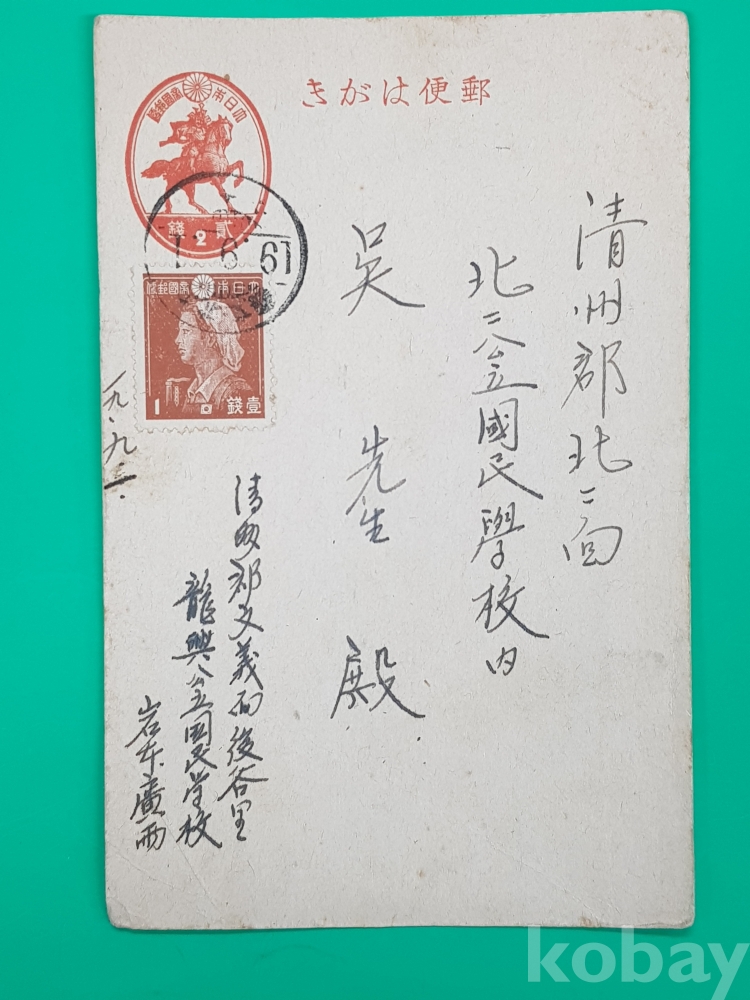 郵便はがき
大日本帝國郵便
貳錢
2
19.6.1
大日本帝國郵便
壹錢
1
清州郡北二面
北二公立國民學校内
吳先生殿
清州郡文義面後谷里
龍興公立國民学校
岩本廣西
一九.九.一.
kobay